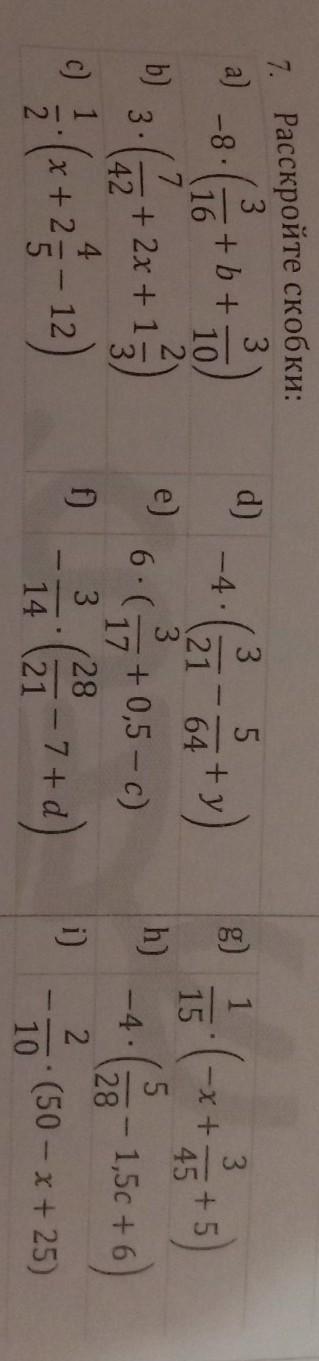 7. Расскройте скобки:
a) −8 · (3/16 + b + 3/10)
b) 3 · (7/42 + 2x + 1 2/3)
c) 1/2 · (x + 2 4/5 − 12)
d) −4 · (3/21 − 5/64 + y)
e) 6 · (3/17 + 0,5 − c)
f) −3/14 · (28/21 − 7 + d)
g) 1/15 · (−x + 3/45 + 5)
h) −4 · (5/28 − 1,5c + 6)
i) −2/10 · (50 − x + 25)